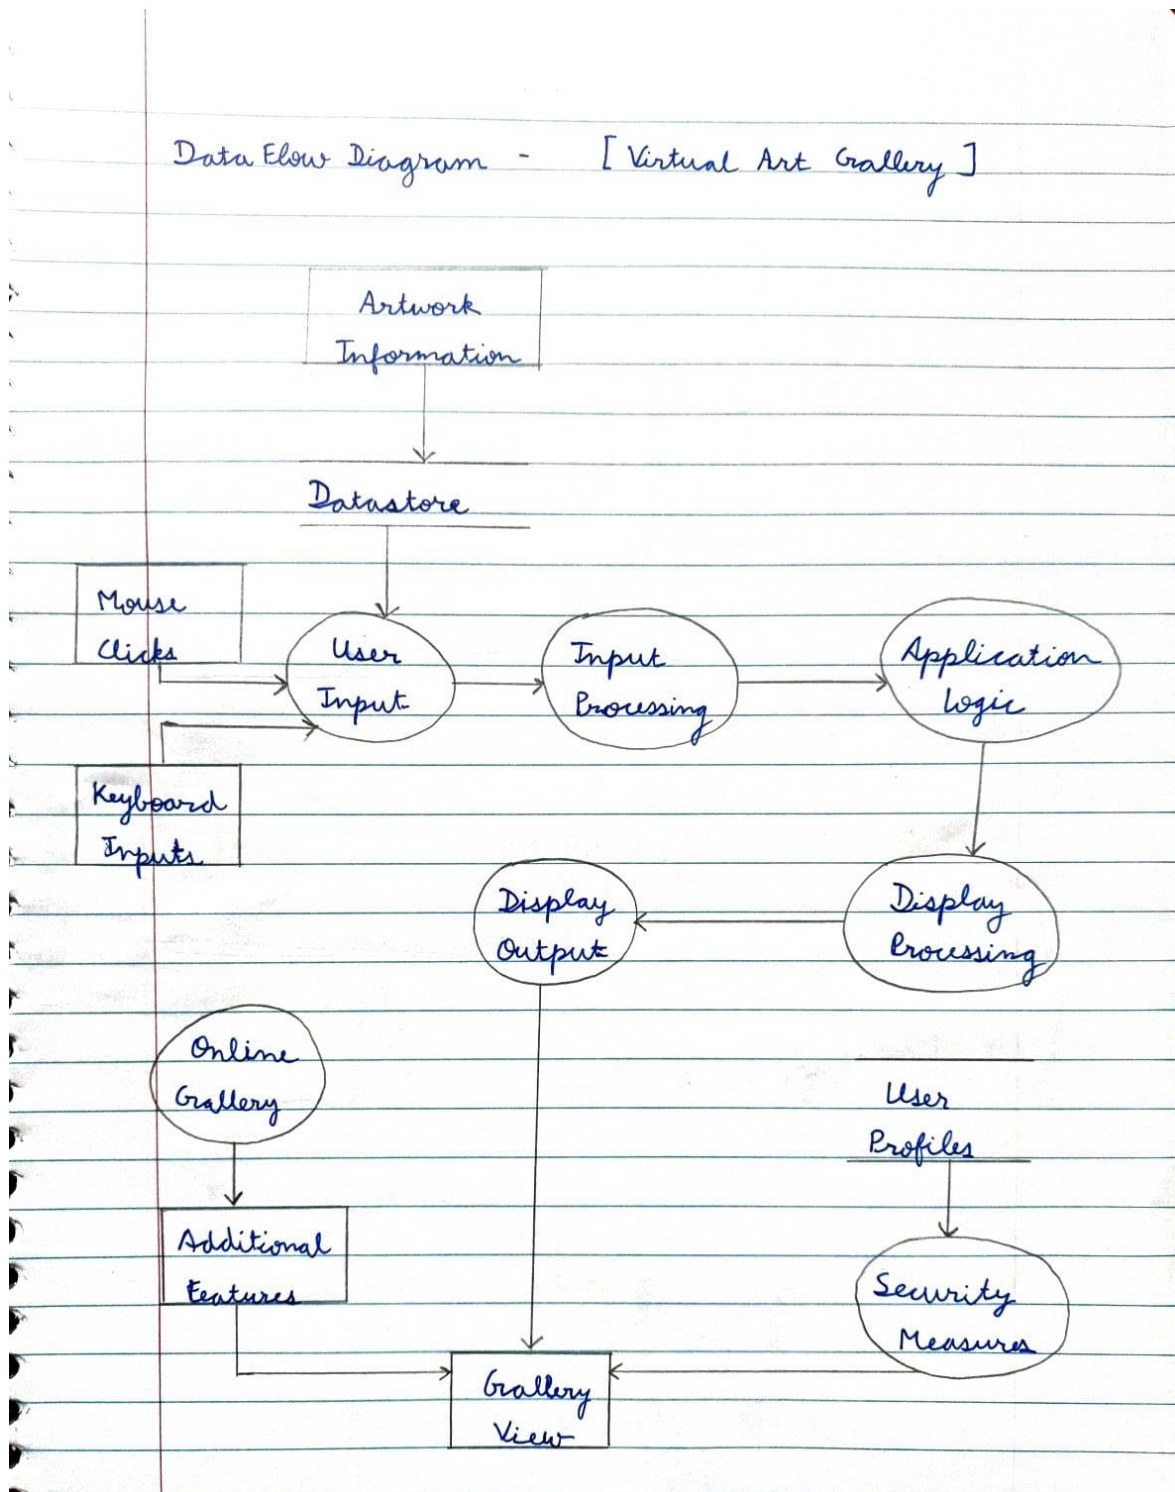 Data Flow Diagram - [Virtual Art Gallery]
Artwork
Information
Datastore
Mouse
Clicks
User
Input
Input
Processing
Application
Logic
Keyboard
Inputs
Display
Output
Display
Processing
Online
Gallery
User
Profiles
Additional
Features
Security
Measures
Gallery
View